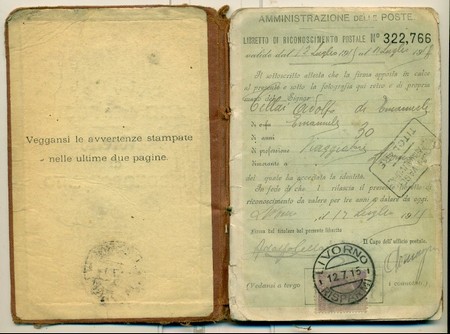 Veggansi le avvertenze stampate
nelle ultime due pagine.
AMMINISTRAZIONE DELLE POSTE.
LIBRETTO DI RICONOSCIMENTO POSTALE Nº 322,766
valido dal 12 Luglio 1915 al 11 Luglio
Il sottoscritto attesta che la firma apposta in calce
al presente e sotto la fotografia qui retro è di propria
mano del Signor
Cellai Adolfo di Emanuele
di Emanuele
di anni 30
di professione
dimorante a
del quale ha accertata la identità.
In fede di che rilascia il presente
riconoscimento da valere per tre anni a datare da oggi.
il 12 Luglio 1915
Firma del titolare del presente libretto
Il Capo dell'ufficio postale.
Adolfo Cellai
LIVORNO
12.7.15
RISPARMI
(Vedansi a tergo